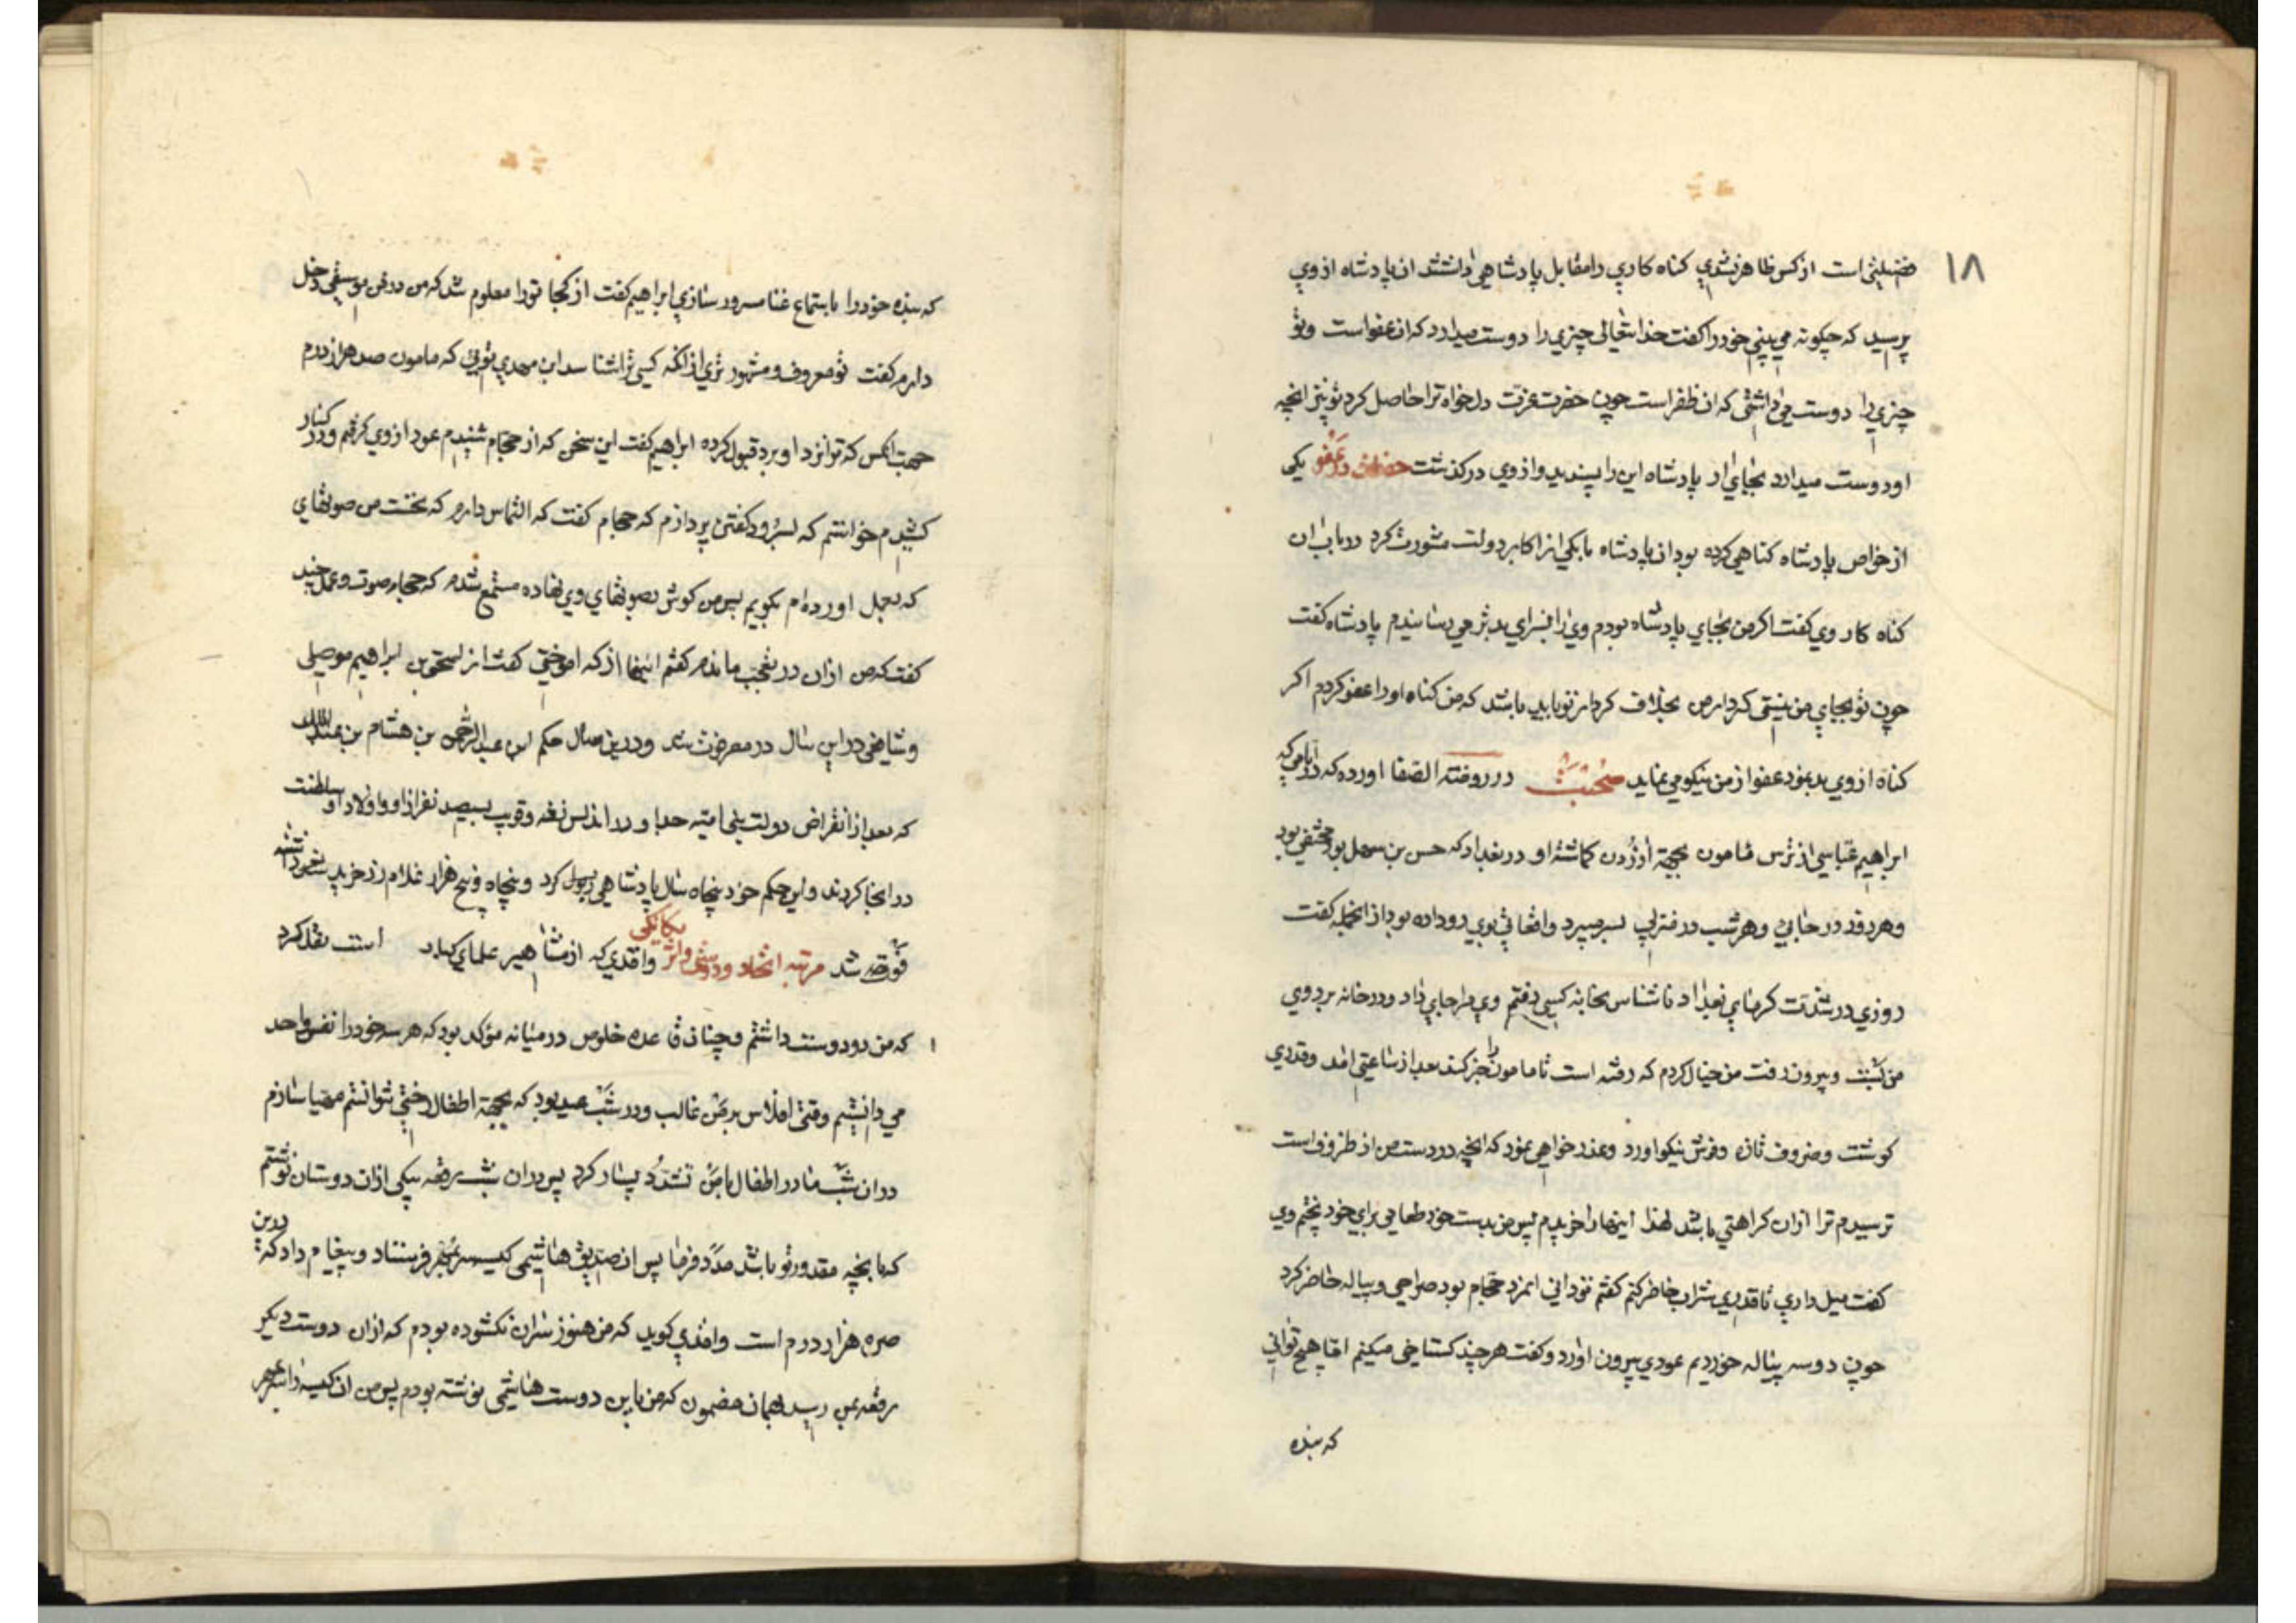 ۱۸
فضیلتی است از کس ظاهر نشدی کناه کاری را مقابل پادشاهی داشتند ان پادشاه از وی
پرسید که چکونه می بینی خود را کفت خدا تعالی چیزی را دوست میدارد که ان عفو است و تو
چیزی را دوست می داشتی که ان ظفر است چون حضرت عزت دلخواه ترا حاصل کرد تو نیز انچه
او دوست میدارد بجای ار پادشاه این را پسندید و از وی در کذشت در عفو یکی
از خواص پادشاه کناهی کرده بود ان پادشاه با یکی از اکابر دولت مشورت کرد در باب ان
کناه کار وی کفت اکر من بجای پادشاه بودم وی را بسزای بدتر می رسانیدم پادشاه کفت
چون تو بجای من نیستی کردار من بخلاف کردار تو باید باشد که من کناه او را عفو کردم اکر
کناه از وی بد بنمود عفو از من نیکو می نماید در روضته الصفا اورده که در ایامی که
ابراهیم عباسی از ترس مامون بجهة او در بغداد که حسن بن سهل بود مختفی بود
و هر روز در جایی و هر شب در منزلی بسر میبرد واقعاتی بوی رو داده بود از انجمله کفت
روزی در شدت کرمای بغداد ناشناس بخانه کسی رفتم وی مرا جای داد و در خانه بر روی
من ببست و بیرون رفت من خیال کردم که رفته است تا مامون را خبر کند بعد از ساعتی امد و قدری
کوشت و ضروف تازه و فرش نیکو اورد و عذر خواهی نمود که انچه در دست من از ظروف است
ترسیدم ترا ازان کراهتی باشد لهذا اینها را خریدم پس من بدست خود طعامی برای خود پختم وی
کفت میل داری تا قدری شراب حاضر کنم کفتم تو دانی انمرد حجام بود صراحی و پیاله حاضر کرد
چون دو سه پیاله خوردیم عودی بیرون اورد و کفت هر چند کستاخی میکنم اما هیچ توانی
که بنده
که بنده خود را باستماع غنا مسرور سازی ابراهیم کفت از کجا تو را معلوم شد که من در فن موسیقی دخل
دارم کفت تو معروف و مشهور تری از انکه کسی ترا نشناسد ابن مهدی تویی که مامون صد هزار درم
جهت انکس که ترا نزد او برد قبول کرده ابراهیم کفت این سخن که از حجام شنیدم عود از وی کرفتم و در کنار
کشیدم خواستم که بسرود کفتن پردازم که حجام کفت که التماس دارم که نخست من صوتهای
که بعمل اورده ام بکویم پس من کوش بصوتهای وی نهاده مستمع شدم که حجام صوت و عمل چند
کفت که من ازان در تعجب ماندم کفتم اینها از که اموختی کفت از اسحق بن ابراهیم موصلی
و شافعی در این سال در مصر فوت شد و در ین سال حکم ابن عبد الرحمن بن هشام بن عبدالملک
که بعد از انقراض دولت بنی امیه و در اندلس رفته و قریب بسیصد نفر از او و اولاد او سلطنت
در انجا کردند و این حکم خود پنجاه سال پادشاهی کرد و پنجاه و پنج هزار غلام زر خرید داشته
فوت شد مرتبه اتحاد و دوستی و اثر یکانکی واقدی که از مشاهیر علمای است نقل کرد
که من دو دوست داشتم و چنان قاعده خلوص در میانه مؤکد بود که هر سه خود را نفس واحد
می دانستیم وقتی افلاس بر من غالب و در شب عید بود که بجهة اطفال رختی نتوانستم مهیا سازم
در ان شب مادر اطفال با من تشدد بسیار کرد پس دران شب رقعه بیکی ازان دوستان نوشتم
که بانچه مقدور تو باشد مدد فرما پس ان صدیق هاشمی کیسه سر بمهر فرستاد و پیغام داد که درین
صره هزار درم است واقدی کوید که من هنوز سر ان نکشوده بودم که ازان دوست دیکر
رقعه بمن رسید بهمان مضمون که من باین دوست هاشمی نوشته بودم پس من ان کیسه را سر بمهر